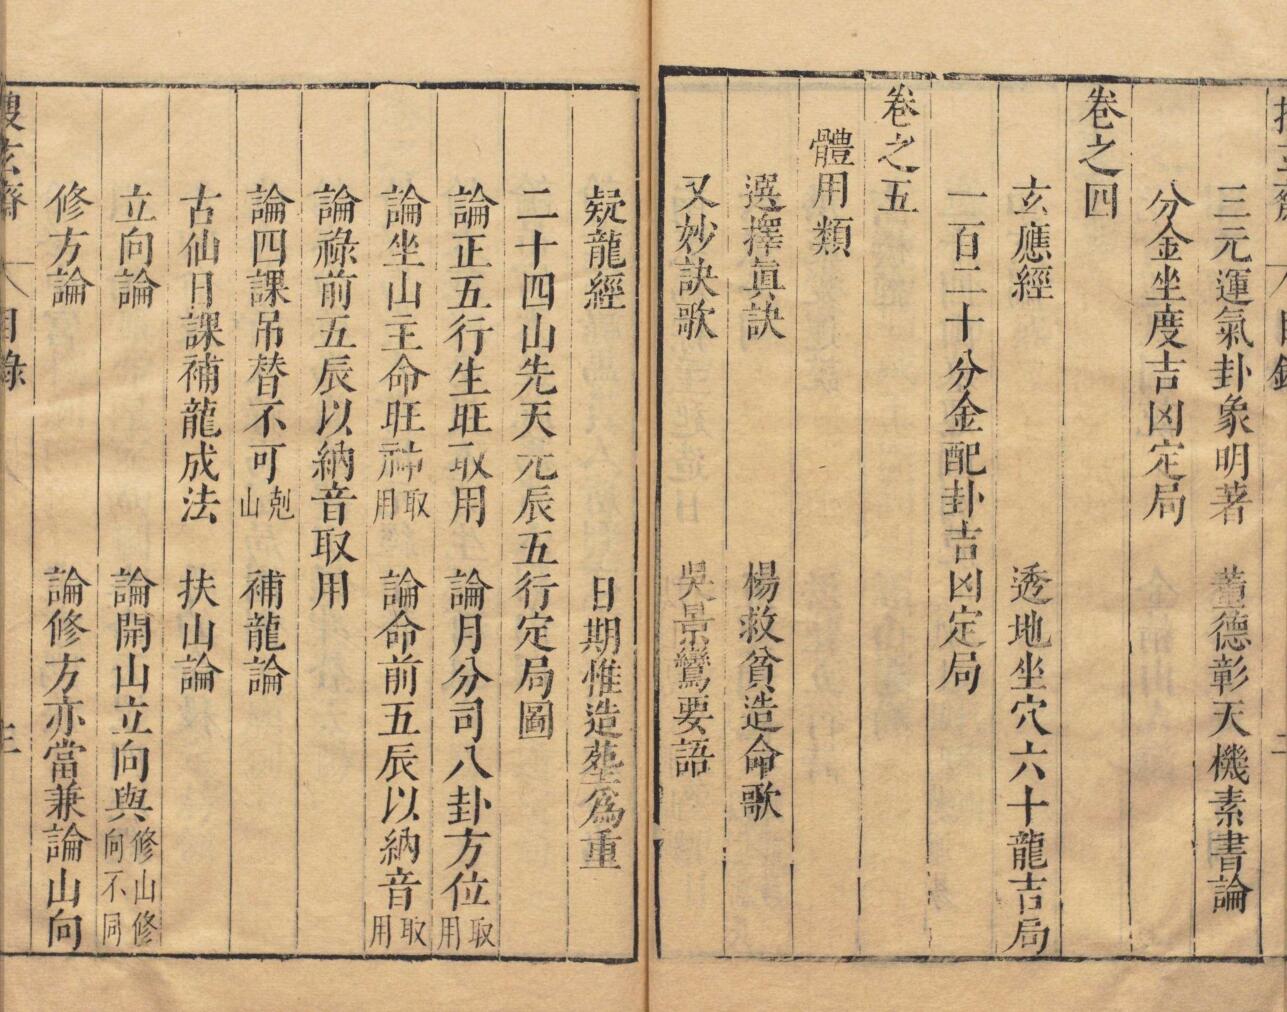 三元運氣卦象明著 董德彰天機素書論
分金坐度吉凶定局
卷之四
玄應經 透地坐穴六十龍吉局
一百二十分金配卦吉凶定局
卷之五
體用類
選擇真訣 楊救貧造命歌
又妙訣歌 吳景鸞要語
疑龍經 日期惟造塟爲重
二十四山先天元辰五行定局圖
論正五行生旺取用 論月分司八卦方位取用
論坐山主命旺神取用 論命前五辰以納音取用
論祿前五辰以納音取用
論四課吊替不可剋山 補龍論
古仙日課補龍成法 扶山論
立向論 論開山立向與修山修向不同
修方論 論修方亦當兼論山向
玄齋 目錄